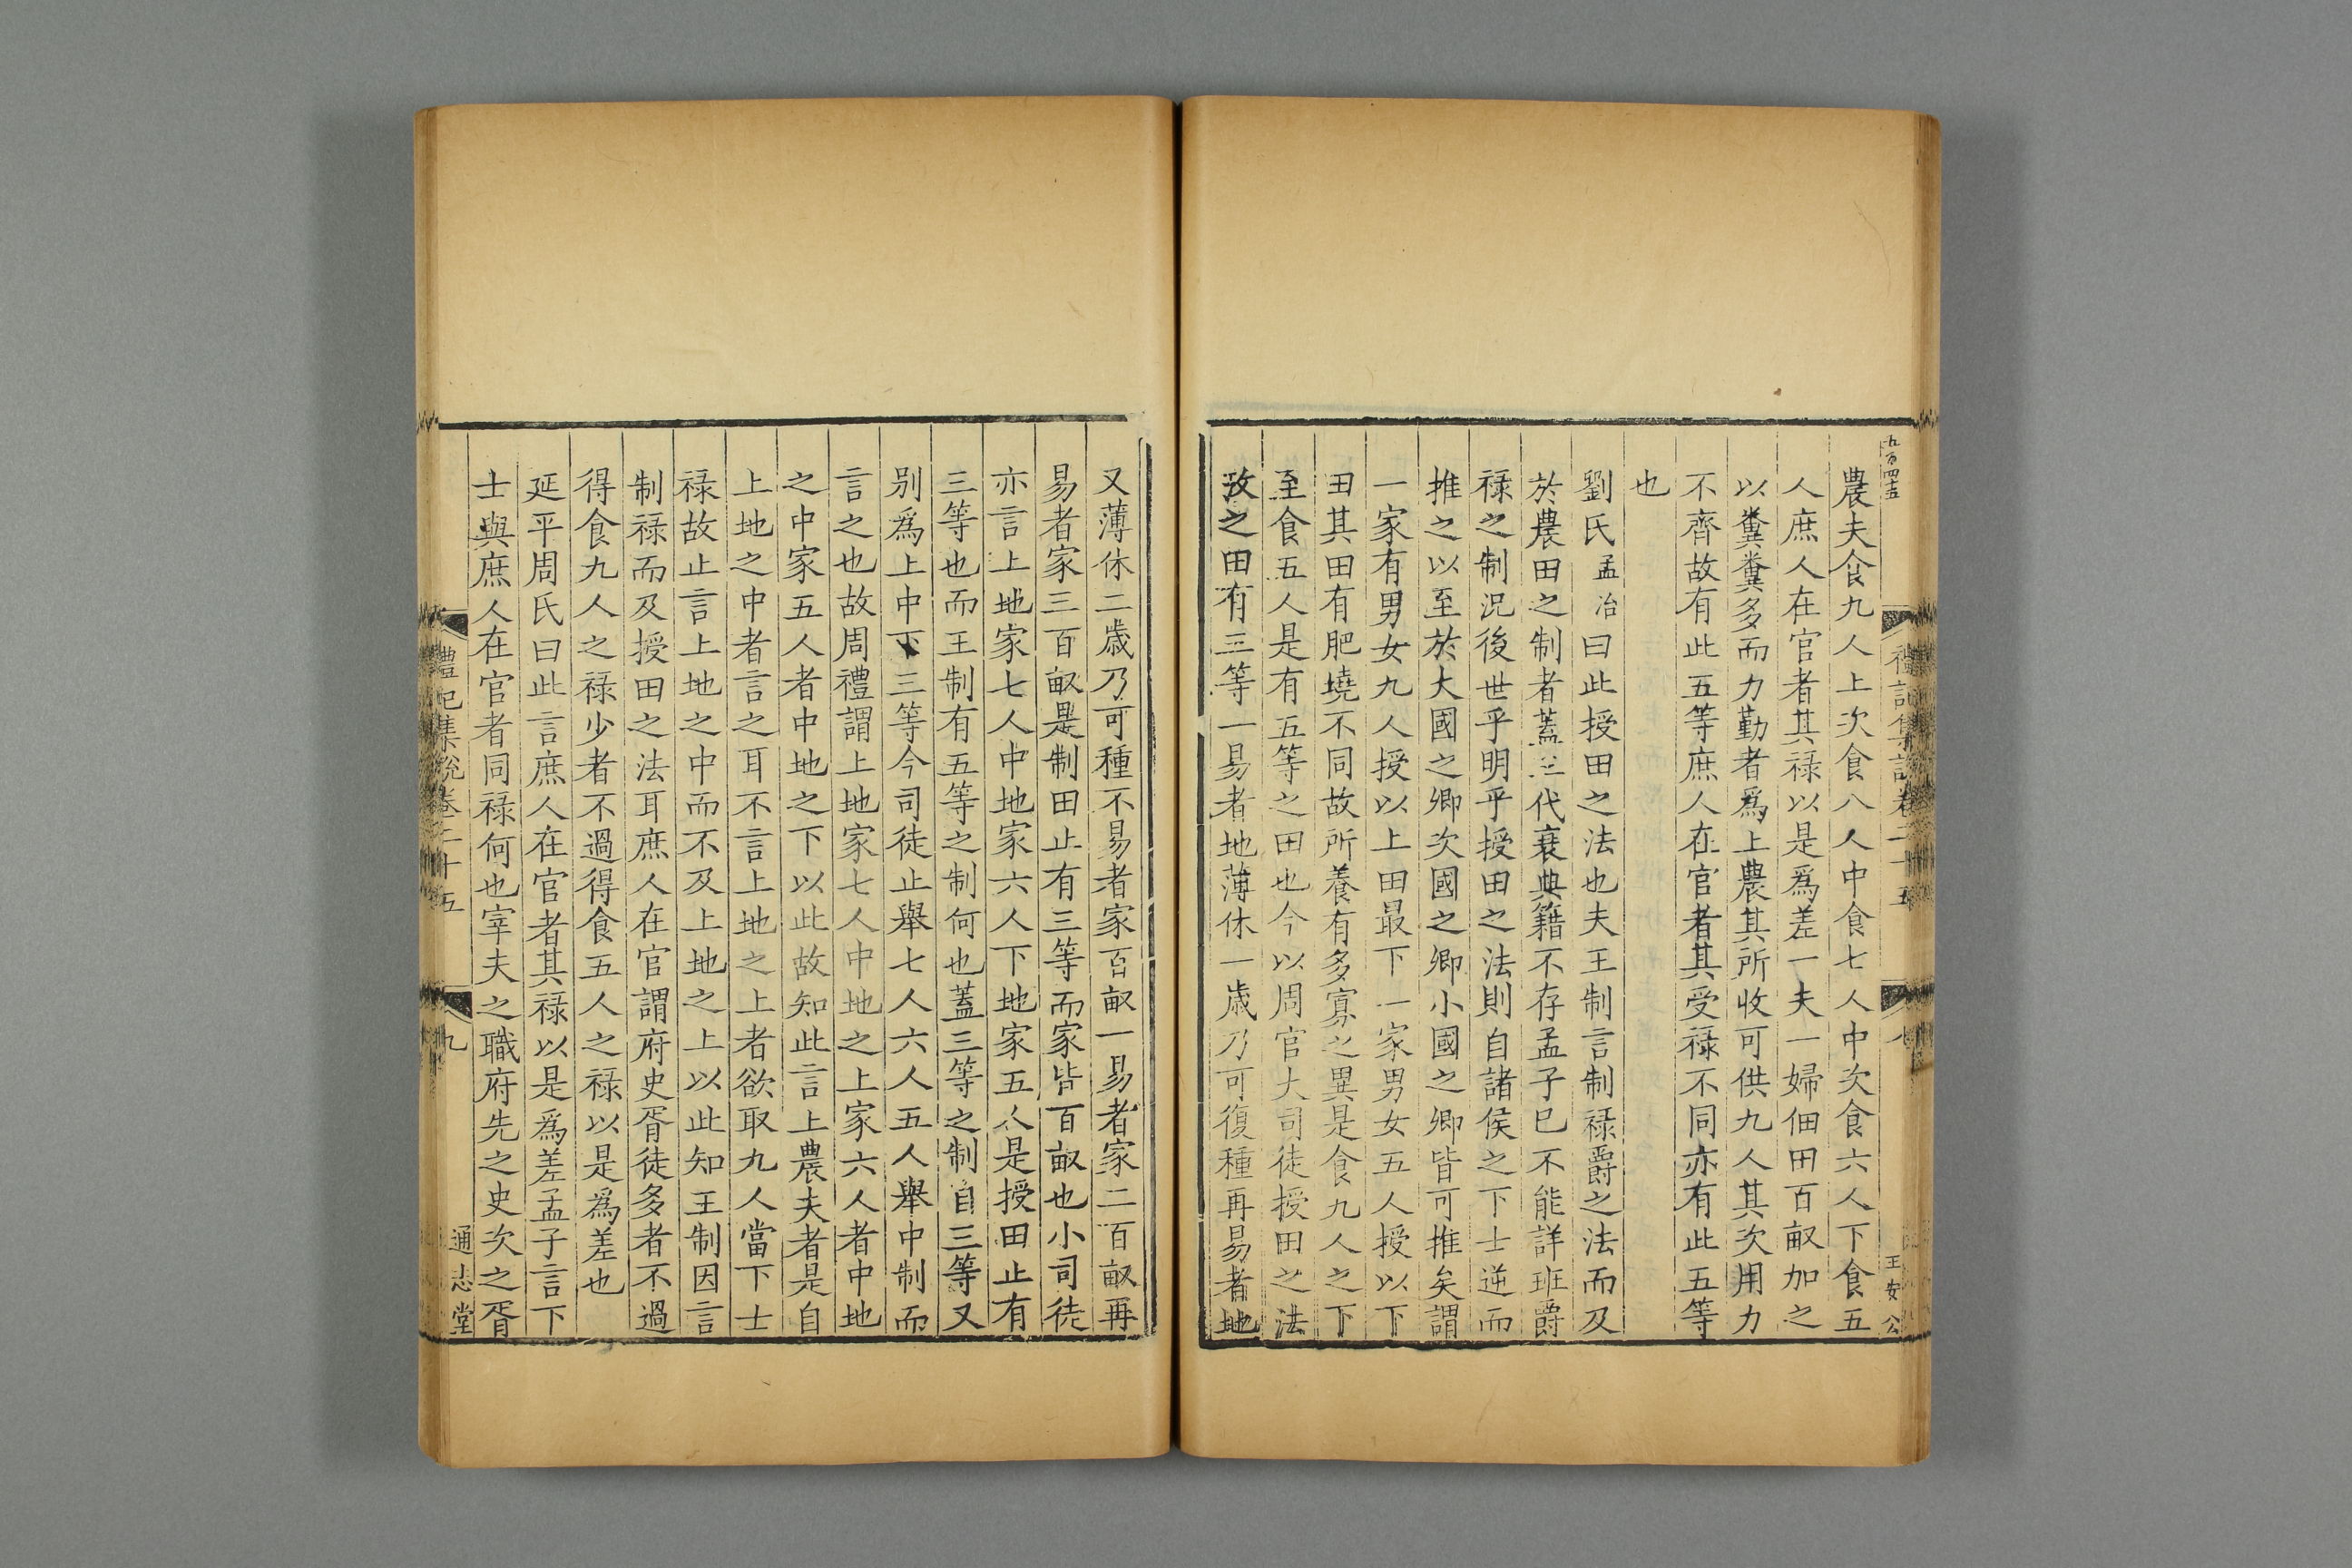 九百四十五
禮記集說卷二十五
八
王安公
農夫食九人上次食八人中食七人中次食六人下食五
人庶人在官者其祿以是爲差一夫一婦佃田百畝加之
以糞糞多而力勤者爲上農其所收可供九人其次用力
不齊故有此五等庶人在官者其受祿不同亦有此五等
也
劉氏孟冶曰此授田之法也夫王制言制祿爵之法而及
於農田之制者蓋三代衰典籍不存孟子已不能詳班爵
祿之制況後世乎明乎授田之法則自諸侯之下士逆而
推之以至於大國之卿次國之卿小國之卿皆可推矣謂
一家有男女九人授以上田最下一家男女五人授以下
田其田有肥墝不同故所養有多寡之異是食九人之下
至食五人是有五等之田也今以周官大司徒授田之法
攷之田有三等一易者地薄休一歲乃可復種再易者地
又薄休二歲乃可種不易者家百畝一易者家二百畝再
易者家三百畝是制田止有三等而家皆百畝也小司徒
亦言上地家七人中地家六人下地家五人是授田止有
三等也而王制有五等之制何也蓋三等之制自三等又
別爲上中下三等今司徒止舉七人六人五人舉中制而
言之也故周禮謂上地家七人中地之上家六人者中地
之中家五人者中地之下以此故知此言上農夫者是自
上地之中者言之耳不言上地之上者欲取九人當下士
祿故止言上地之中而不及上地之上以此知王制因言
制祿而及授田之法耳庶人在官謂府史胥徒多者不過
得食九人之祿少者不過得食五人之祿以是爲差也
延平周氏曰此言庶人在官者其祿以是爲差孟子言下
士與庶人在官者同祿何也宰夫之職府先之史次之胥
禮記集說卷二十五
九
通志堂